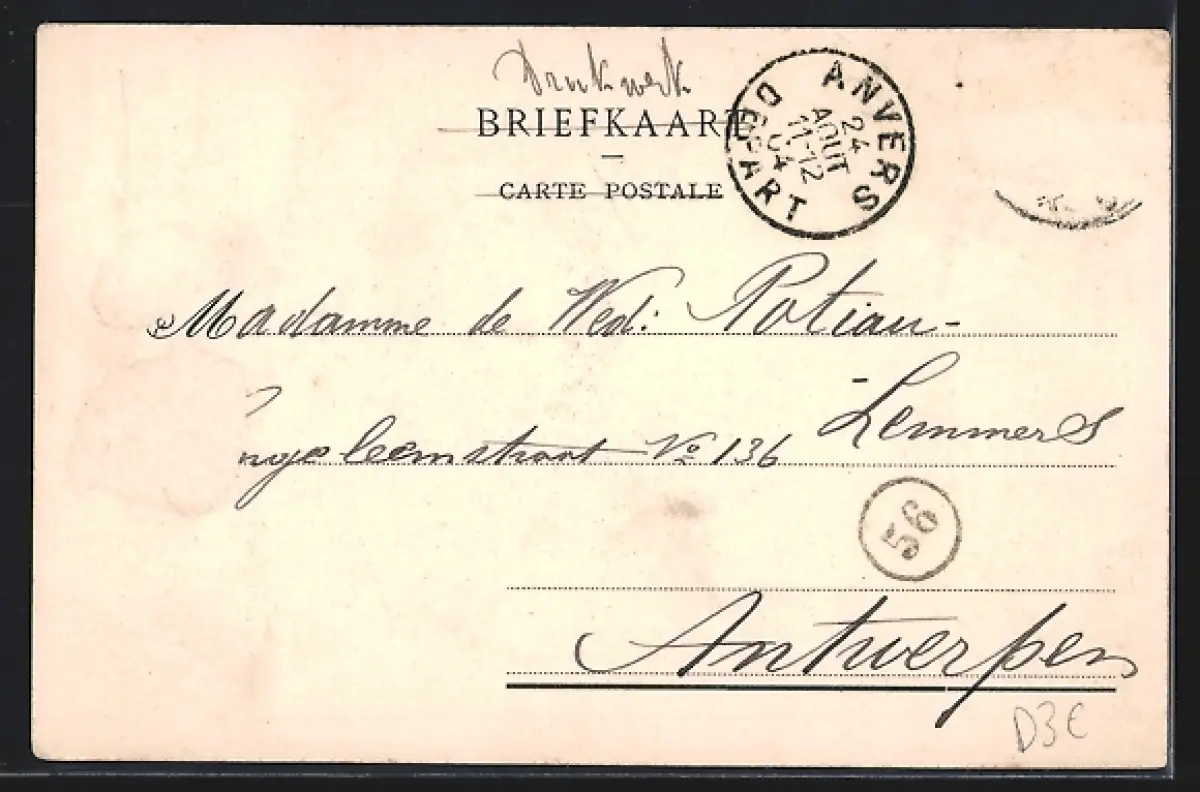 Drukwerk
BRIEFKAART
CARTE POSTALE
ANVERS
24
AOUT
11-12
04
DEPART
Madamme de Wed: Potiau-
-Lemmers
No 136
56
Antwerpen
D3E